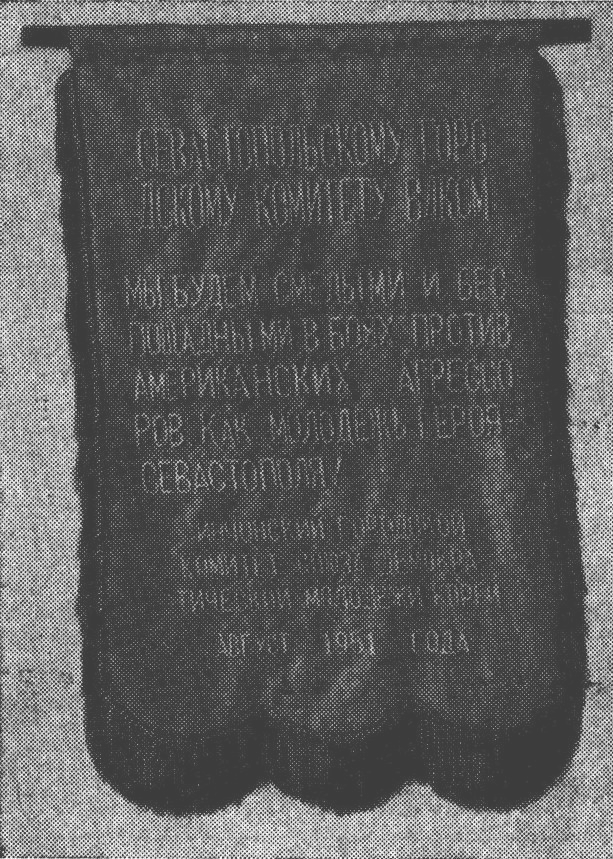 СЕВАСТОПОЛЬСКОМУ ГОРО
ДСКОМУ КОМИТЕТУ ВЛКСМ
МЫ БУДЕМ СМЕЛЫМИ И БЕС
ПОЩАДНЫМИ В БОЯХ ПРОТИВ
АМЕРИКАНСКИХ АГРЕССО
РОВ КАК МОЛОДЕЖЬ ГЕРОЯ-
СЕВАСТОПОЛЯ!
ГОРОДСКОЙ
КОМИТЕТ СОЮЗА ДЕМОКРА
ТИЧЕСКОЙ МОЛОДЕЖИ КОРЕИ
АВГУСТ 1951 ГОДА